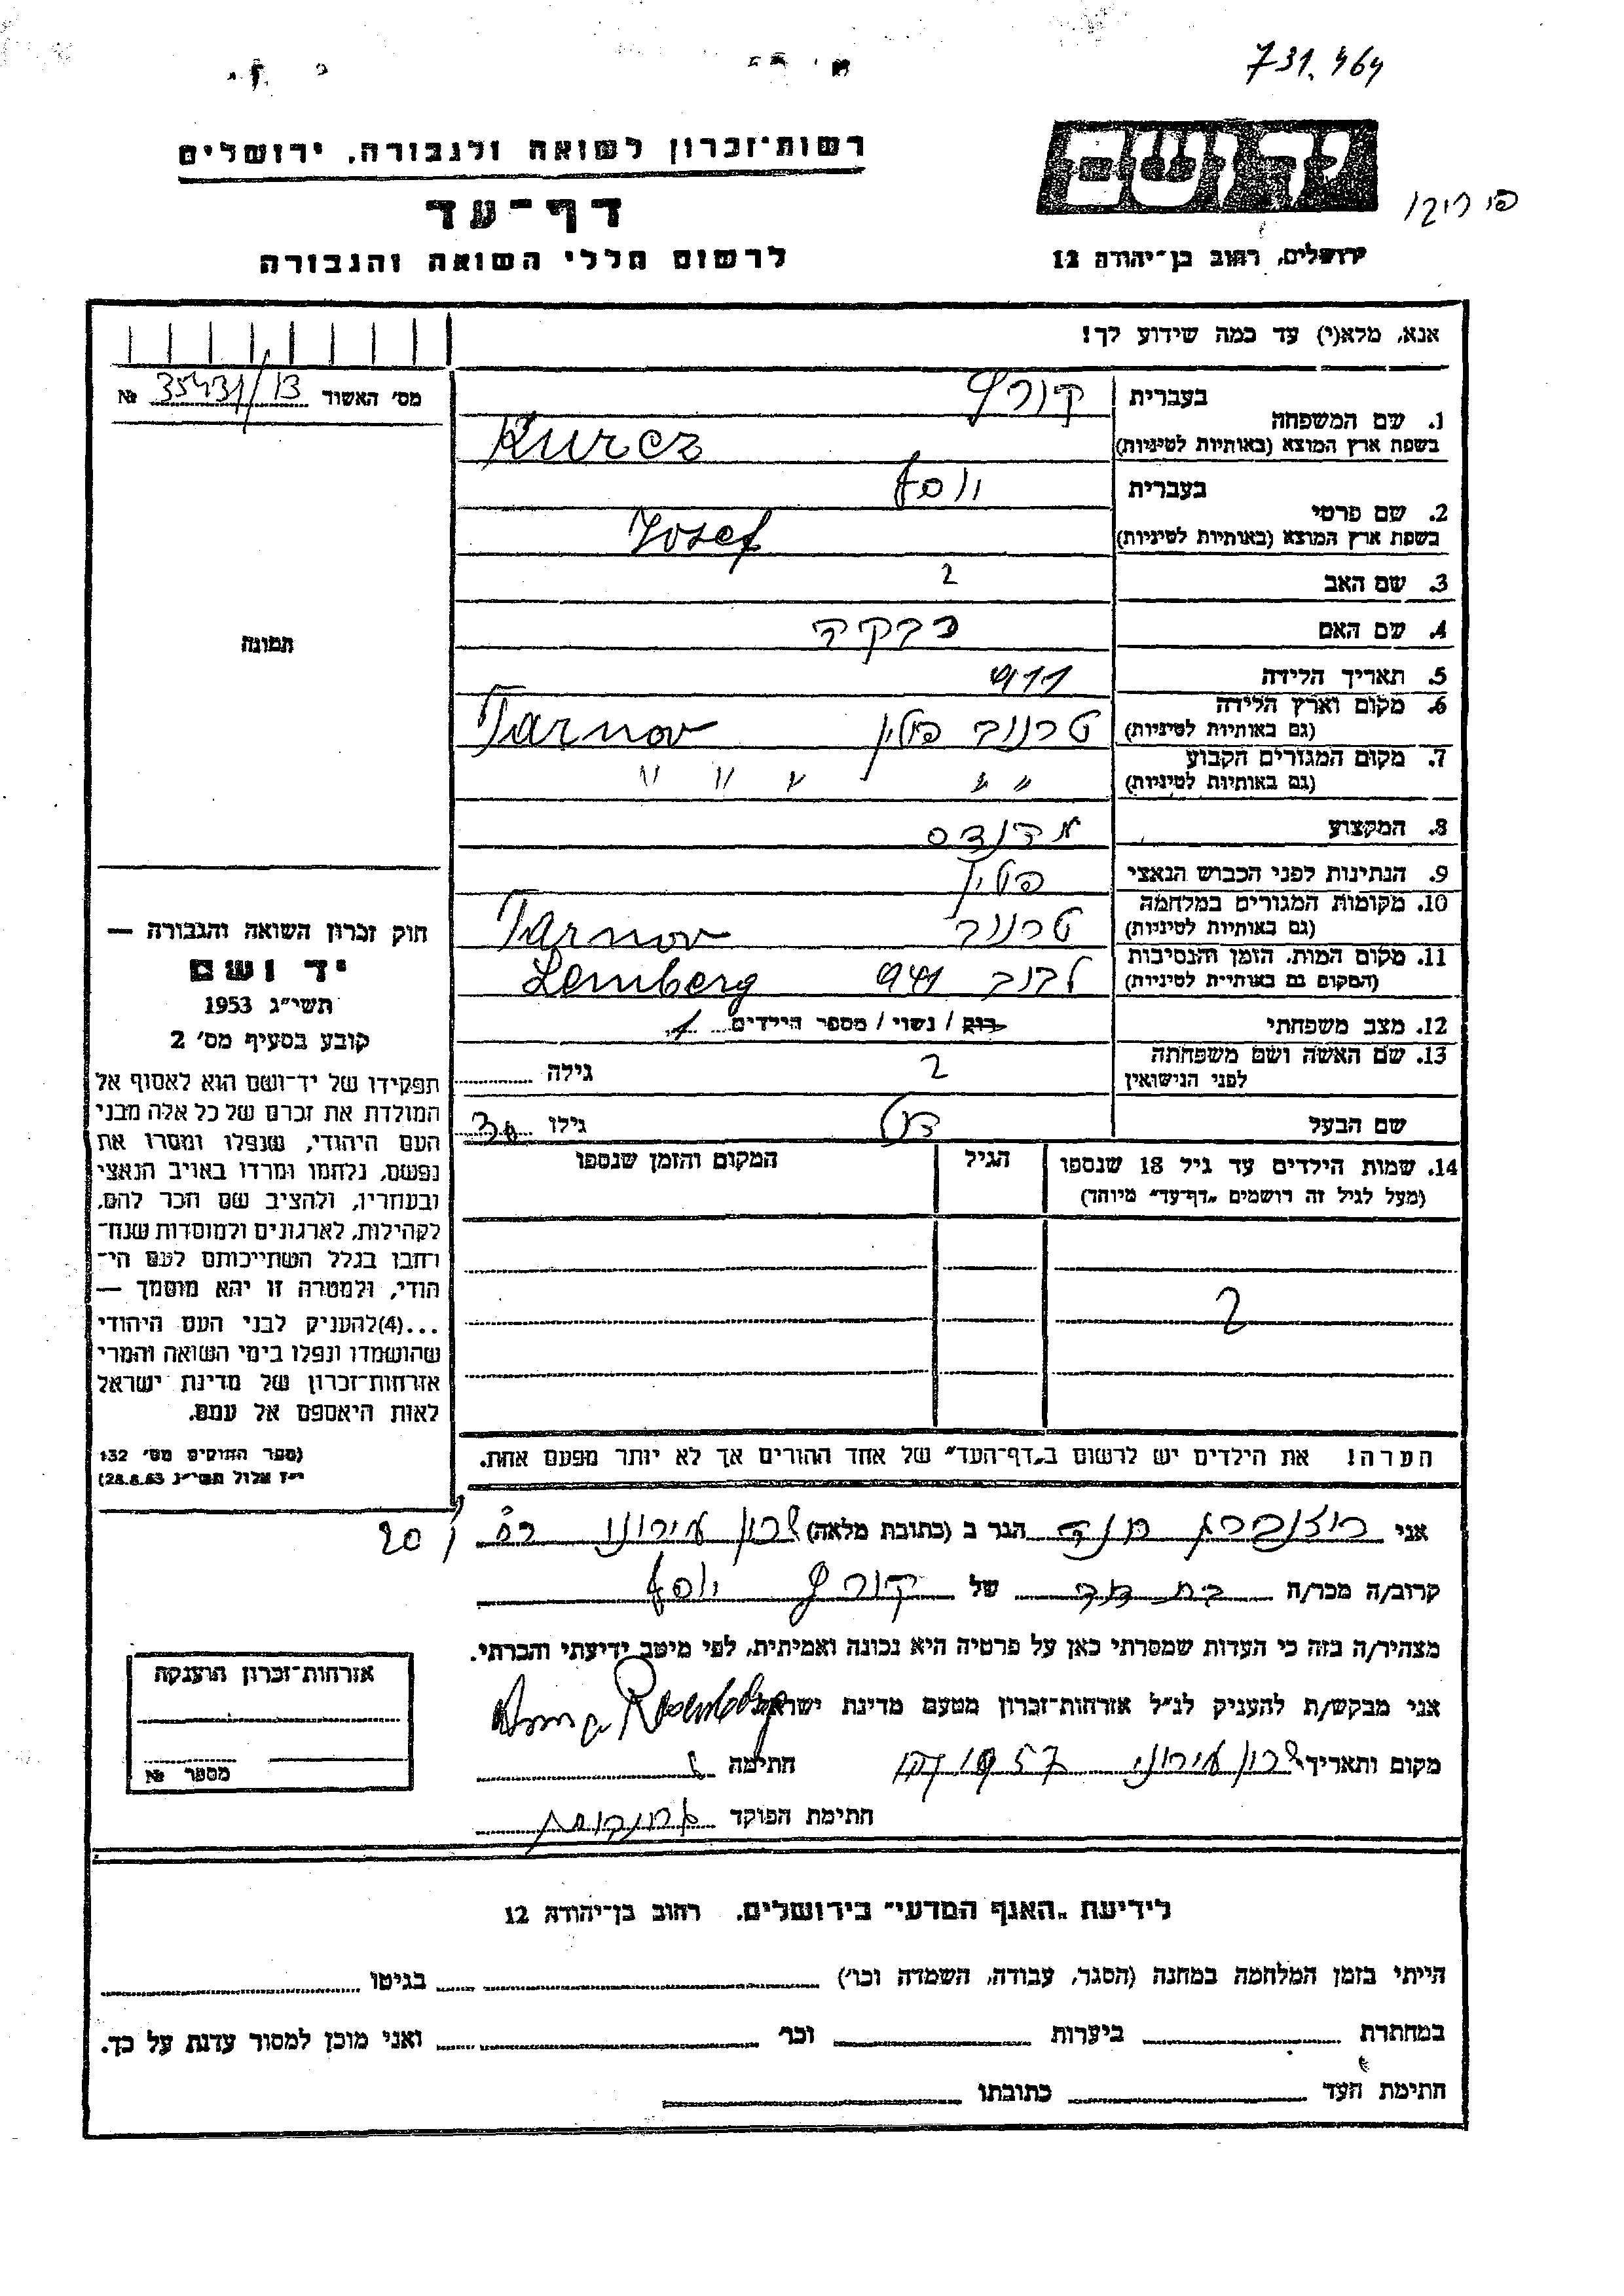 731.464
רשות־זכרון לשואה ולגבורה, ירושלים
יד ושם
דף־עד
ירושלים, רחוב בן־יהודה 12
לרשום חללי השואה והגבורה
אנא, מלא(י) עד כמה שידוע לך!
מס׳ האשור 35431/13 №
1. שם המשפחה
בעברית קורץ
בשפת ארץ המוצא (באותיות לטיניות) Kurcz
2. שם פרטי
בעברית יוסף
בשפת ארץ המוצא (באותיות לטיניות) Josef
3. שם האב ?
4. שם האם רבקה
5. תאריך הלידה 911
6. מקום וארץ הלידה
(גם באותיות לטיניות) טרנוב פולין Tarnov
7. מקום המגורים הקבוע
(גם באותיות לטיניות) " " " " "
8. המקצוע מהנדס
9. הנתינות לפני הכבוש הנאצי פולין
10. מקומות המגורים במלחמה
(גם באותיות לטיניות) טרנוב Tarnov
11. מקום המות, הזמן והנסיבות
(המקום גם באותיות לטיניות) לבוב 941 Lemberg
12. מצב משפחתי רוק / נשוי / מספר הילדים 1
13. שם האשה ושם משפחתה
לפני הנישואין ? גילה
שם הבעל גילו 30
14. שמות הילדים עד גיל 18 שנספו
(מעל לגיל זה רושמים „דף־עד״ מיוחד)
הגיל
המקום והזמן שנספו
?
הערה! את הילדים יש לרשום ב„דף־העד״ של אחד ההורים אך לא יותר מפעם אחת.
תמונה
חוק זכרון השואה והגבורה —
יד ושם
תשי״ג 1953
קובע בסעיף מס׳ 2
תפקידו של יד־ושם הוא לאסוף אל
המולדת את זכרם של כל אלה מבני
העם היהודי, שנפלו ומסרו את
נפשם, נלחמו ומרדו באויב הנאצי
ובעוזריו, ולהציב שם וזכר להם,
לקהילות, לארגונים ולמוסדות שנח־
רחבו בגלל השתייכותם לעם הי־
הודי, ולמטרה זו יהא מוסמך —
...(4)להעניק לבני העם היהודי
שהושמדו ונפלו בימי השואה והמרי
אזרחות־זכרון של מדינת ישראל
לאות היאספם אל עמם.
(ספר החוקים מס׳ 132
י״ז אלול תשי״ג 28.8.53)
אני רוזנברג חנה הגר ב (כתובת מלאה) שכון עירוני
קרוב/ה מכר/ה בת דוד של קורץ יוסף
מצהיר/ה בזה כי העדות שמסרתי כאן על פרטיה היא נכונה ואמיתית, לפי מיטב ידיעתי והכרתי.
אני מבקש/ת להעניק לנ״ל אזרחות־זכרון מטעם מדינת ישראל
מקום ותאריך שכון עירוני 1957 חתימה
חתימת הפוקד
אזרחות־זכרון הוענקה
מספר №
לידיעת „האגף המדעי״ בירושלים, רחוב בן־יהודה 12
הייתי בזמן המלחמה במחנה (הסגר, עבודה, השמדה וכו׳) בגיטו
במחתרת ביערות וכו׳ ואני מוכן למסור עדות על כך.
חתימת העד כתובתו